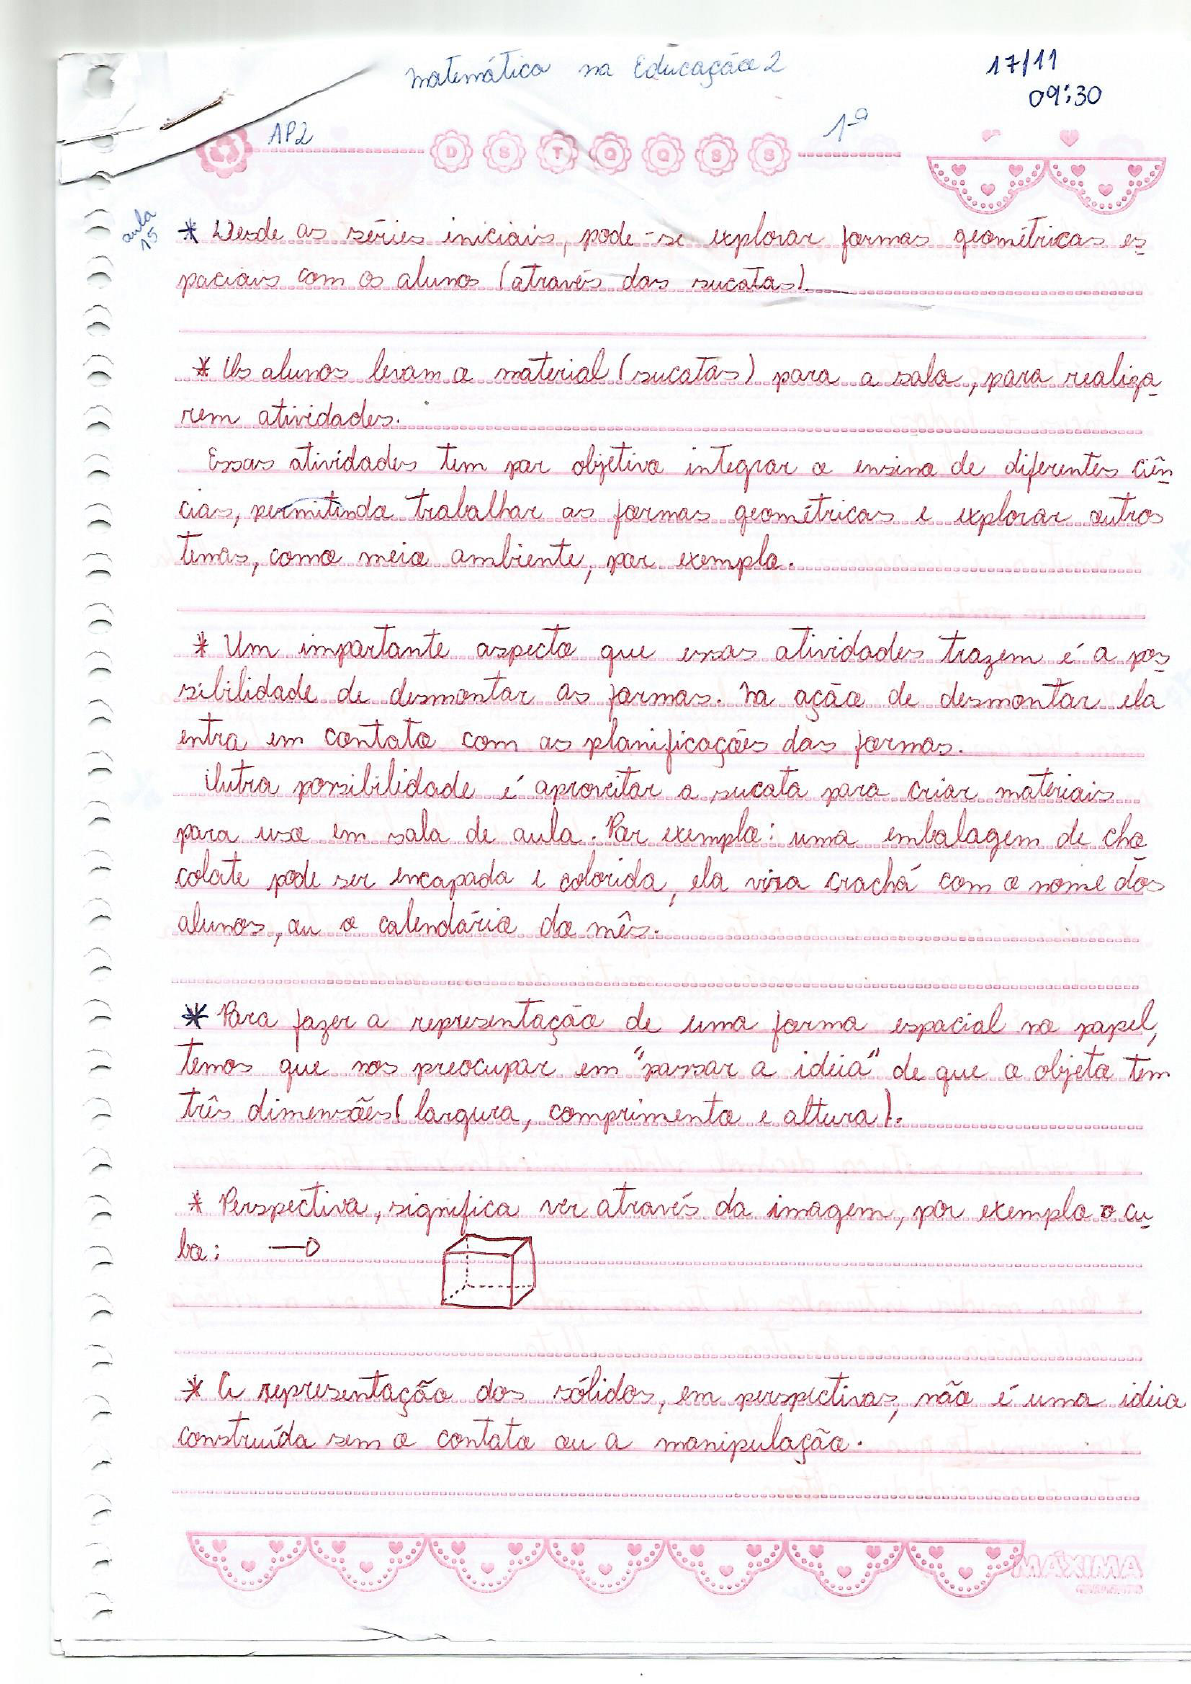 Matemática na Educação 2
17/11
09:30
AP2
1ª
D S T Q Q S S
aula
15
* Desde as séries iniciais, pode-se explorar formas geométricas es
paciais com os alunos (através das sucatas).
* Os alunos levam o material (sucatas) para a sala, para realiza
rem atividades.
Essas atividades tem por objetivo integrar o ensino de diferentes ciên
cias, permitindo trabalhar as formas geométricas e explorar outros
temas, como meio ambiente, por exemplo.
* Um importante aspecto que essas atividades trazem é a pos
sibilidade de desmontar as formas. Na ação de desmontar ela
entra em contato com as planificações das formas.
Outra possibilidade é aproveitar a sucata para criar materiais
para uso em sala de aula. Por exemplo: uma embalagem de cho
colate pode ser encapada e colorida, ela vira crachá com o nome dos
alunos, ou o calendário do mês.
* Para fazer a representação de uma forma espacial no papel,
temos que nos preocupar em "passar a ideia" de que o objeto tem
três dimensões (largura, comprimento e altura).
* Perspectiva, significa ver através da imagem, por exemplo o cu
bo:
* A representação dos sólidos, em perspectivas, não é uma ideia
construída sem o contato ou a manipulação.
MÁXIMA